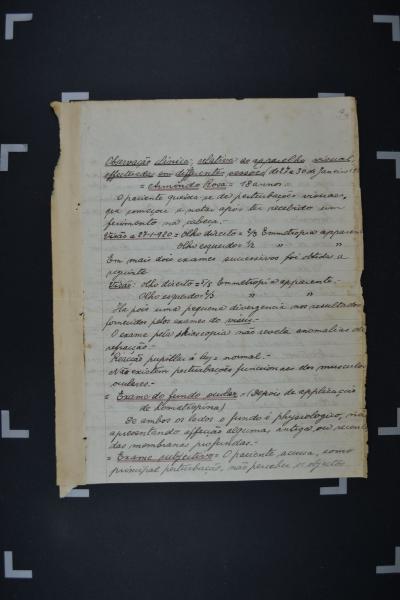 Observação clinica, relativa ao apparelho visual,
effectuada em differentes sessões de 27 a 30 de Janeiro
= Armindo Rosa = 18 annos -
O paciente queixa-se de perturbações visuaes,
que começou a notar após ter recebido um
ferimento na cabeça. -
Visão a 27-1-920 = Olho direito = Emmetropia apparen
Olho esquerdo = 1/2 " "
Em mais dois exames successivos foi obtido o
seguinte
Visão: olho direito = Emmetropia apparente.
Olho esquerdo = " "
Ha pois uma pequena divergencia nos resultados
fornecidos pelos exames do visus. -
O exame pela skiascopia não revela anomalias de
refracção. -
Reacção pupillar á luz = normal. -
Não existem perturbações funccionaes dos musculos
oculares. -
= Exame do fundo ocular = (Depois de applicação
de homatropina)
De ambos os lados o fundo é physiologico, não
apresentando affecção alguma, antiga ou recen
das membranas profundas. -
= Exame subjectivo = O paciente accusa, como
principal perturbação, não perceber os objectos